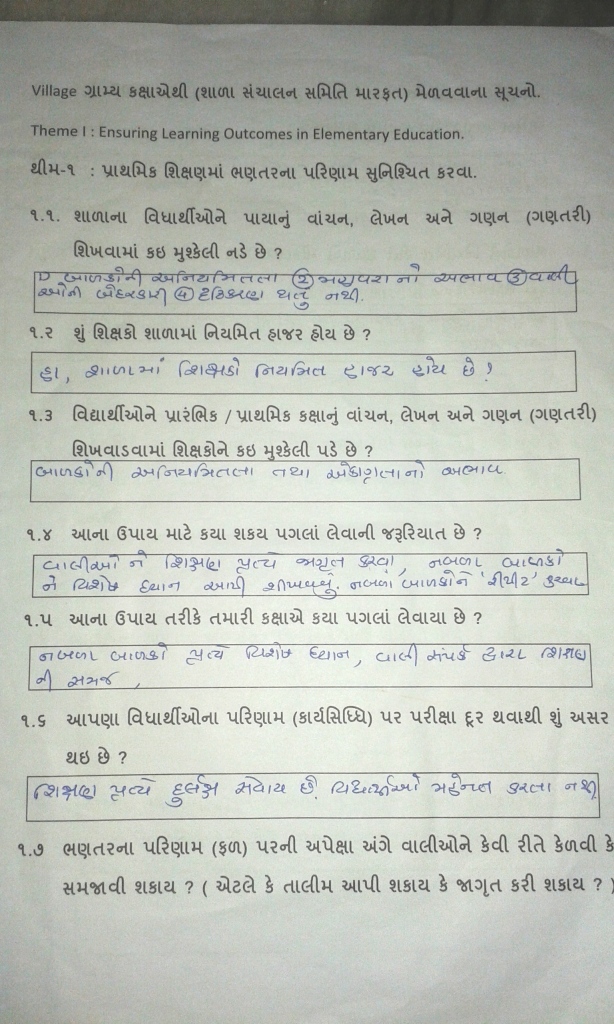 Village ગ્રામ્ય કક્ષાએથી (શાળા સંચાલન સમિતિ મારફત) મેળવવાના સૂચનો.
Theme I : Ensuring Learning Outcomes in Elementary Education.
થીમ-૧ : પ્રાથમિક શિક્ષણમાં ભણતરના પરિણામ સુનિશ્ચિત કરવા.
૧.૧. શાળાના વિધાર્થીઓને પાયાનું વાંચન, લેખન અને ગણન (ગણતરી)
શિખવામાં કઇ મુશ્કેલી નડે છે ?
① બાળકોની અનિયમિતતા ② મહાવરાનો અભાવ ③ વાલી
ઓની બેદરકારી ④ દ્રઢિકરણ થતું નથી.
૧.૨ શું શિક્ષકો શાળામાં નિયમિત હાજર હોય છે ?
હા, શાળામાં શિક્ષકો નિયમિત હાજર હોય છે!
૧.૩ વિદ્યાર્થીઓને પ્રારંભિક / પ્રાથમિક કક્ષાનું વાંચન, લેખન અને ગણન (ગણતરી)
શિખવાડવામાં શિક્ષકોને કઇ મુશ્કેલી પડે છે ?
બાળકોની અનિયમિતતા તથા એકાગ્રતાનો અભાવ
૧.૪ આના ઉપાય માટે કયા શકય પગલાં લેવાની જરૂરિયાત છે ?
વાલીઓ ને શિક્ષણ પ્રત્યે જાગૃત કરવા, નબળા બાળકો
ને વિશેષ ધ્યાન આપી શીખવવું. નબળા બાળકોને 'રીપીટ' કરવા
૧.૫ આના ઉપાય તરીકે તમારી કક્ષાએ કયા પગલાં લેવાયા છે ?
નબળા બાળકો પ્રત્યે વિશેષ ધ્યાન, વાલી સંપર્ક દ્વારા શિક્ષણ
ની સમજ,
૧.૬ આપણા વિધાર્થીઓના પરિણામ (કાર્યસિધ્ધિ) પર પરીક્ષા દૂર થવાથી શું અસર
થઇ છે ?
શિક્ષણ પ્રત્યે દુર્લક્ષ સેવાય છે. વિદ્યાર્થીઓ મહેનત કરતા નથી
૧.૭ ભણતરના પરિણામ (ફળ) પરની અપેક્ષા અંગે વાલીઓને કેવી રીતે કેળવી કે
સમજાવી શકાય ? ( એટલે કે તાલીમ આપી શકાય કે જાગૃત કરી શકાય ? )